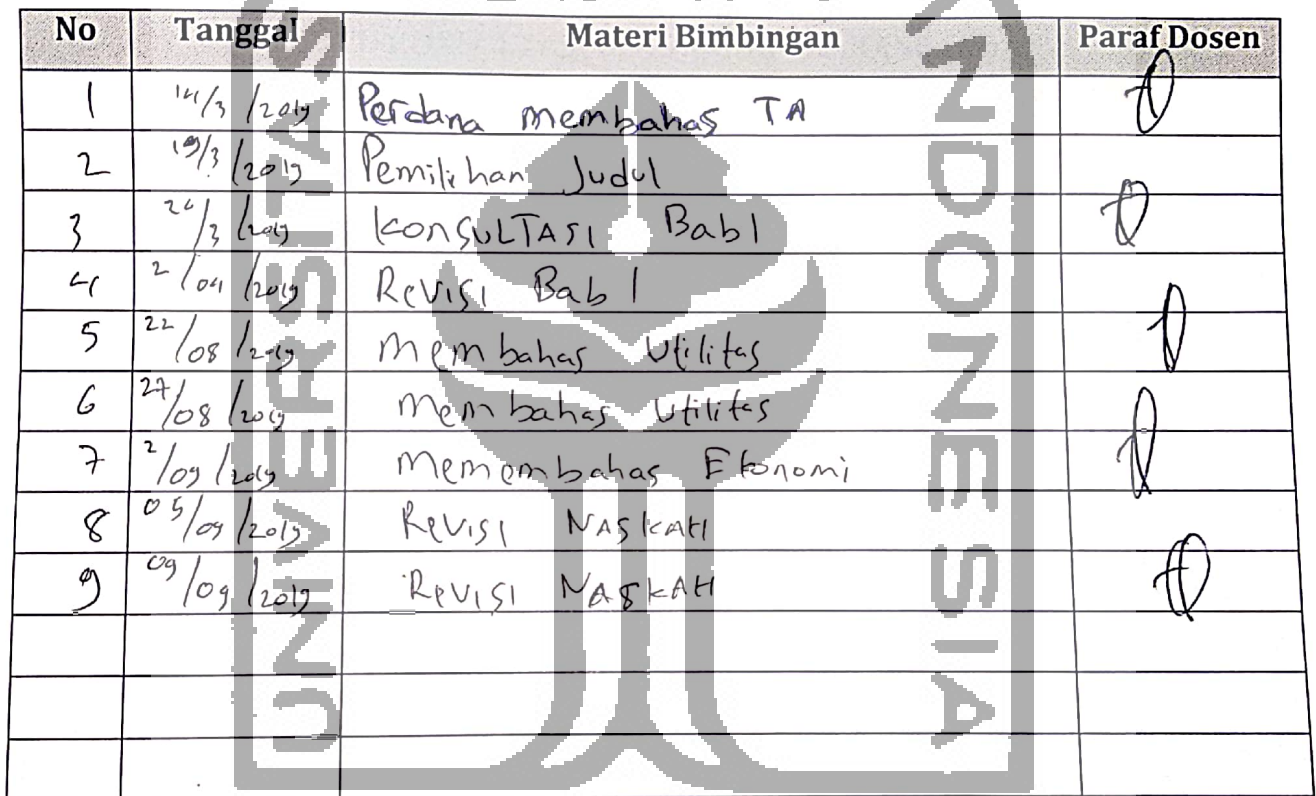 No Tanggal Materi Bimbingan Paraf Dosen
1 14/3/2019 Perdana membahas TA
2 19/3/2019 Pemilihan Judul
3 /3/2019 KONSULTASI Bab 1
4 2/04/2019 Revisi Bab 1
5 22/08/2019 Membahas Utilitas
6 27/08/2019 Membahas Utilitas
7 2/09/2019 Memembahas Ekonomi
8 05/09/2019 Revisi NASKAH
9 09/09/2019 Revisi NASKAH
UNIVERSITAS
INDONESIA